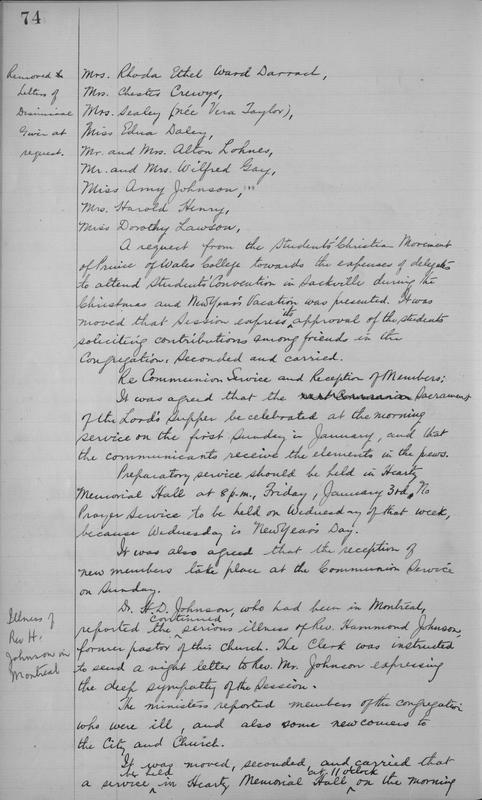 74
Removed &
Letters of
Dismissal
Given at
request.
Mrs. Rhoda Ethel Ward Darrach,
Mrs. Chester Crewys,
Mrs. Sealey (née Vera Taylor),
Miss Edna Daley,
Mr. and Mrs. Alton Lohnes,
Mr. and Mrs. Wilfred Gay,
Miss Amy Johnson,
Mrs. Harold Henry,
Miss Dorothy Lawson,
A request from the Students' Christian Movement
of Prince of Wales College towards the expenses of delegates
to attend Students' Convention in Sackville during the
Christmas and New Year's Vacation was presented. It was
moved that Session express its approval of the students
soliciting contributions among friends in the
Congregation, Seconded and carried.
Re Communion Service and Reception of Members:
It was agreed that the next Communion Sacrament
of the Lord's Supper be celebrated at the morning
service on the first Sunday in January, and that
the communicants receive the elements in the pews.
Preparatory service should be held in Heartz
Memorial Hall at 8 p.m., Friday, January 3rd, No
Prayer Service to be held on Wednesday of that week,
because Wednesday is New Year's Day.
It was also agreed that the reception of
new members take place at the Communion Service
on Sunday.
Illness of
Rev H.
Johnson in
Montreal
Dr. H. D. Johnson, who had been in Montreal,
reported the continued serious illness of Rev. Hammond Johnson,
former pastor of this church. The Clerk was instructed
to send a night letter to Rev. Mr. Johnson expressing
the deep sympathy of the Session.
The ministers reported members of the congregation
who were ill, and also some newcomers to
the City and Church.
It was moved, seconded, and carried that
a service be held in Heartz Memorial Hall at 11 o'clock on the morning